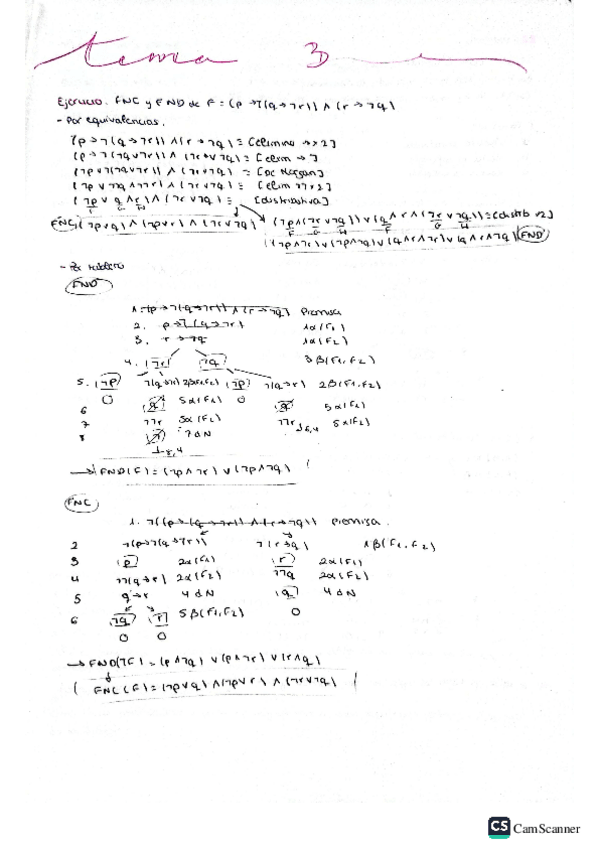 tema 3
Ejercicio. FNC y FND de F = (p → ¬(q → ¬r)) ∧ (r → ¬q)
- Por equivalencias.
(p → ¬(q → ¬r)) ∧ (r → ¬q) ≡ [elimino → x2]
(p → ¬(¬q ∨ ¬r)) ∧ (¬r ∨ ¬q) ≡ [elim → ]
(¬p ∨ ¬(¬q ∨ ¬r)) ∧ (¬r ∨ ¬q) ≡ [De Morgan]
(¬p ∨ ¬¬q ∧ ¬¬r) ∧ (¬r ∨ ¬q) ≡ [elim ¬¬ x2]
(¬p ∨ q ∧ r) ∧ (¬r ∨ ¬q) ≡ [distributiva]
F G H
FNC (¬p ∨ q) ∧ (¬p ∨ r) ∧ (¬r ∨ ¬q) (¬p ∧ (¬r ∨ ¬q)) ∨ (q ∧ r ∧ (¬r ∨ ¬q)) ≡ [distrib x2]
F G H F G H
(¬p ∧ ¬r) ∨ (¬p ∧ ¬q) ∨ (q ∧ r ∧ ¬r) ∨ (q ∧ r ∧ ¬q) FND
- Por tablero
FND
1. (p → ¬(q → ¬r)) ∧ (r → ¬q) Premisa
2. p → ¬(q → ¬r) 1α(F1)
3. r → ¬q 1α(F2)
4. ¬r ¬q 3β(F1,F2)
5. ¬p ¬(q→¬r) 2β(F1,F2) ¬p ¬(q→¬r) 2β(F1,F2)
6 q 5α(F1) q 5α(F1)
7 ¬¬r 5α(F2) ¬¬r ⊥6,4 5α(F2)
8 r 7dN
⊥8,4
→ FND(F) = (¬p ∧ ¬r) ∨ (¬p ∧ ¬q)
FNC
1. ¬((p → ¬(q → ¬r)) ∧ (r → ¬q)) Premisa.
2 ¬(p → ¬(q → ¬r)) ¬(r → ¬q) 1β(F1,F2)
3 p 2α(F1) r 2α(F1)
4 ¬¬(q → ¬r) 2α(F2) ¬¬q 2α(F2)
5 q → r 4dN q 4dN
6 ¬q r 5β(F1,F2)
→ FND(¬F) = (p ∧ ¬q) ∨ (p ∧ ¬r) ∨ (r ∧ q)
FNC(F) = (¬p ∨ q) ∧ (¬p ∨ r) ∧ (¬r ∨ ¬q)
CS CamScanner